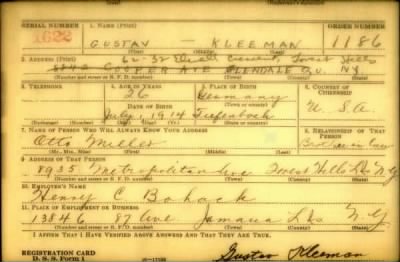 SERIAL NUMBER 1. NAME (Print) ORDER NUMBER
1622 GUSTAV — KLEEMAN 1186
(First) (Middle) (Last)
62-32 Crescent, Forest Hills
2. ADDRESS (Print)
COOPER AVE GLENDALE QU. NY
(Number and street or R. F. D. number) (Town) (County) (State)
3. TELEPHONE 4. AGE IN YEARS 5. PLACE OF BIRTH 6. COUNTRY OF CITIZENSHIP
26 Germany
DATE OF BIRTH (Town or county) U.S.A.
July 1 1914 Tiefenbach
(Exchange) (Number) (Mo.) (Day) (Yr.) (State or country)
7. NAME OF PERSON WHO WILL ALWAYS KNOW YOUR ADDRESS 8. RELATIONSHIP OF THAT PERSON
Otto Miller Brother in law
(Mr., Mrs., Miss) (First) (Middle) (Last)
9. ADDRESS OF THAT PERSON
8935 Metropolitan Ave Forest Hills N.Y
(Number and street or R. F. D. number) (Town) (County) (State)
10. EMPLOYER'S NAME
Henry C Bohack
11. PLACE OF EMPLOYMENT OR BUSINESS
13846 87 Ave Jamaica N.Y
(Number and street or R. F. D. number) (Town) (County) (State)
I AFFIRM THAT I HAVE VERIFIED ABOVE ANSWERS AND THAT THEY ARE TRUE.
REGISTRATION CARD
D. S. S. FORM 1 Gustav Kleeman